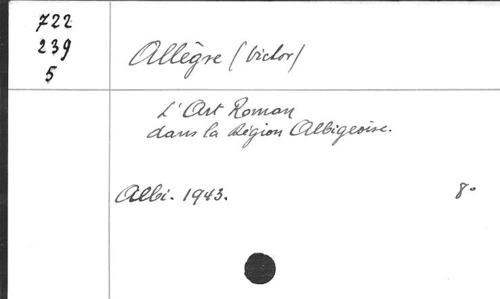 722
239
5
Allègre (Victor)
L'Art Roman
dans la Région Albigeoise.
Albi. 1943.
8°